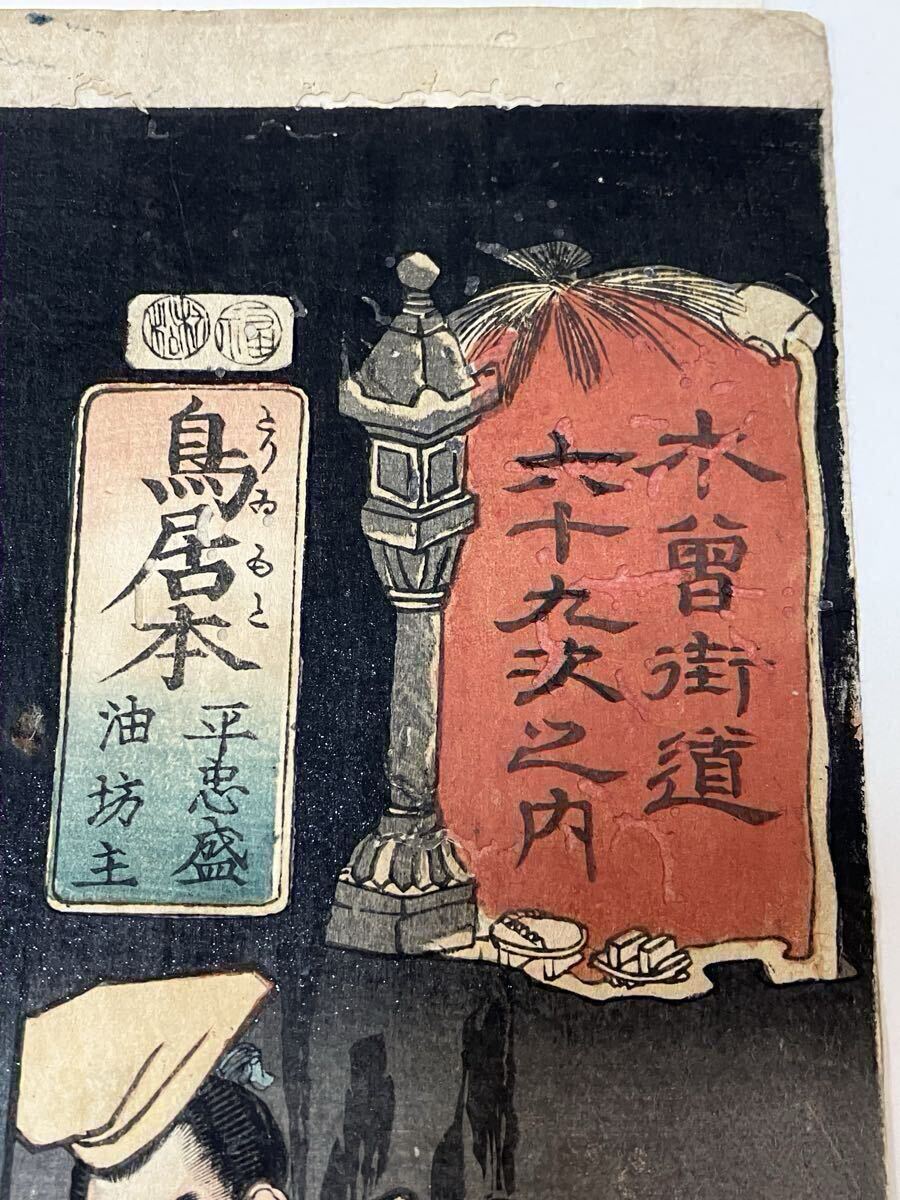 木曾街道
六十九次之内
鳥居本
とりゐもと
平忠盛
油坊主
福